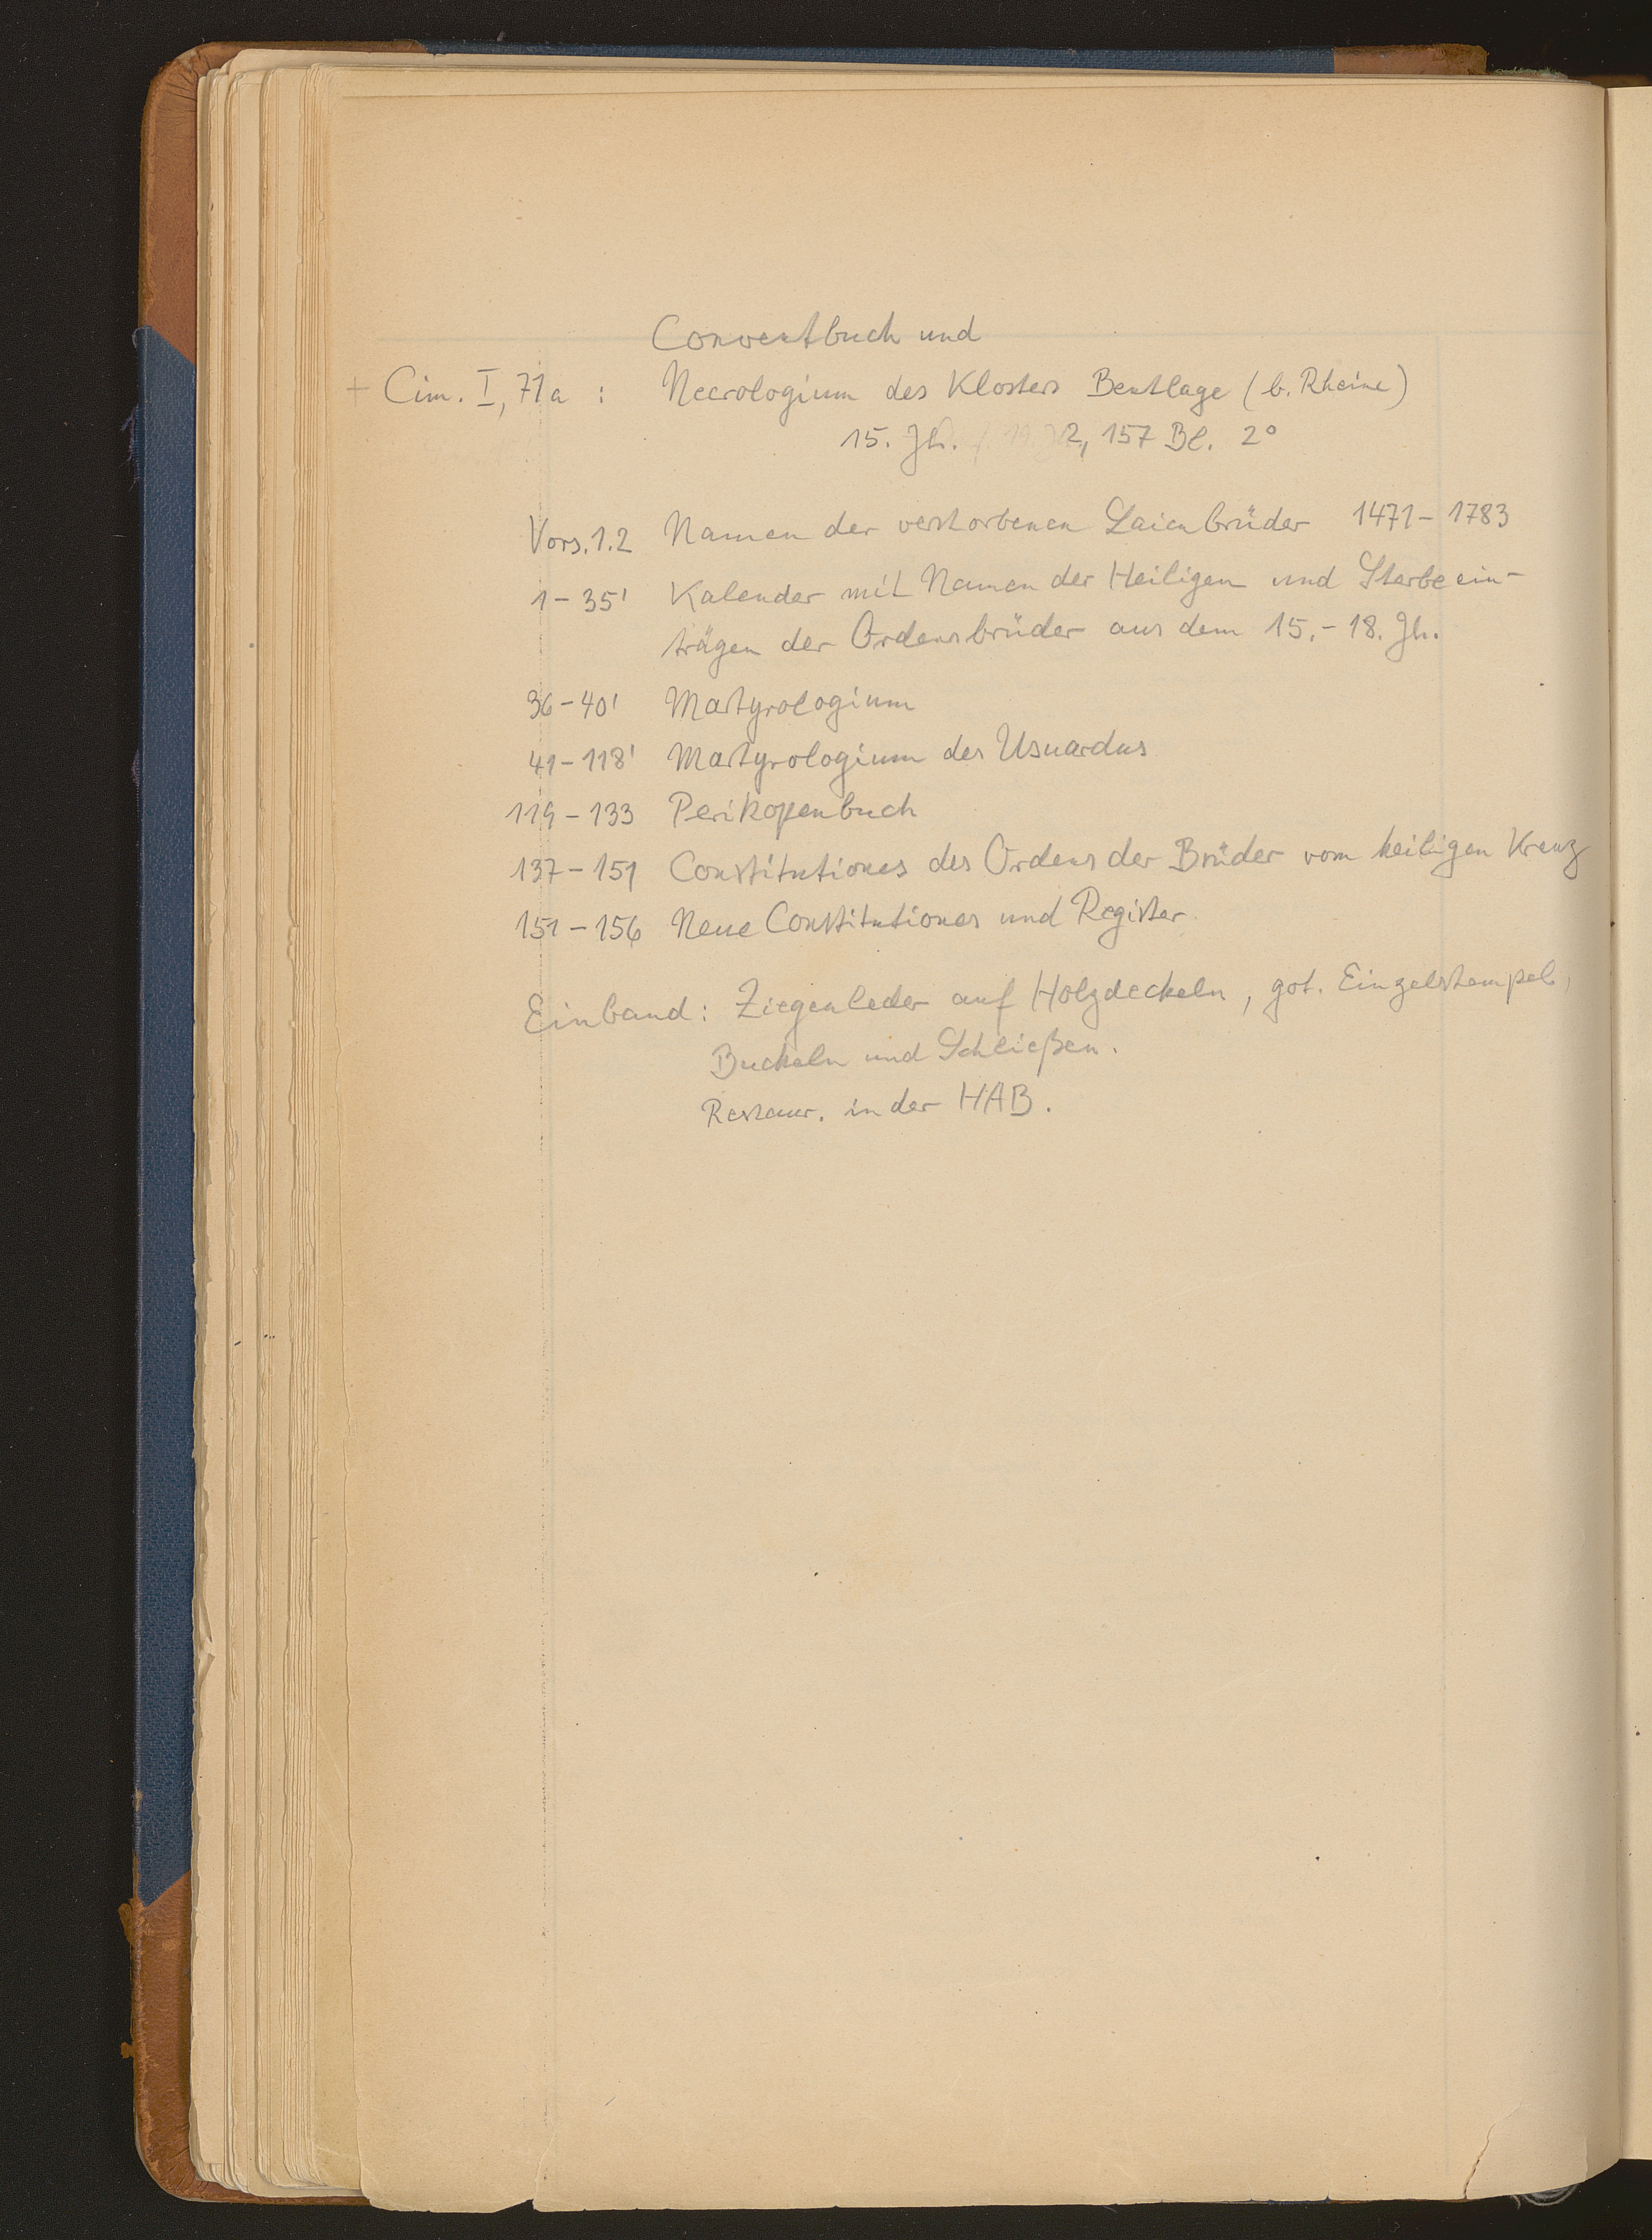 Conventbuch und
+ Cim. I, 71a : Necrologium des Klosters Bentlage (b. Rheine)
15. Jh. 2, 157 Bl. 2°
Vors. 1.2 Namen der verstorbenen Laienbrüder 1471-1783
1-35' Kalender mit Namen der Heiligen und Sterbeein-
trägen der Ordensbrüder aus dem 15.-18. Jh.
36-40' Martyrologium
41-118' Martyrologium des Usuardus
119-133 Perikopenbuch
137-151 Constitutiones des Ordens der Brüder vom heiligen Kreuz
151-156 Neue Constitutiones und Register
Einband: Ziegenleder auf Holzdeckeln, got. Einzelstempel,
Buckeln und Schließen.
Restaur. in der HAB.